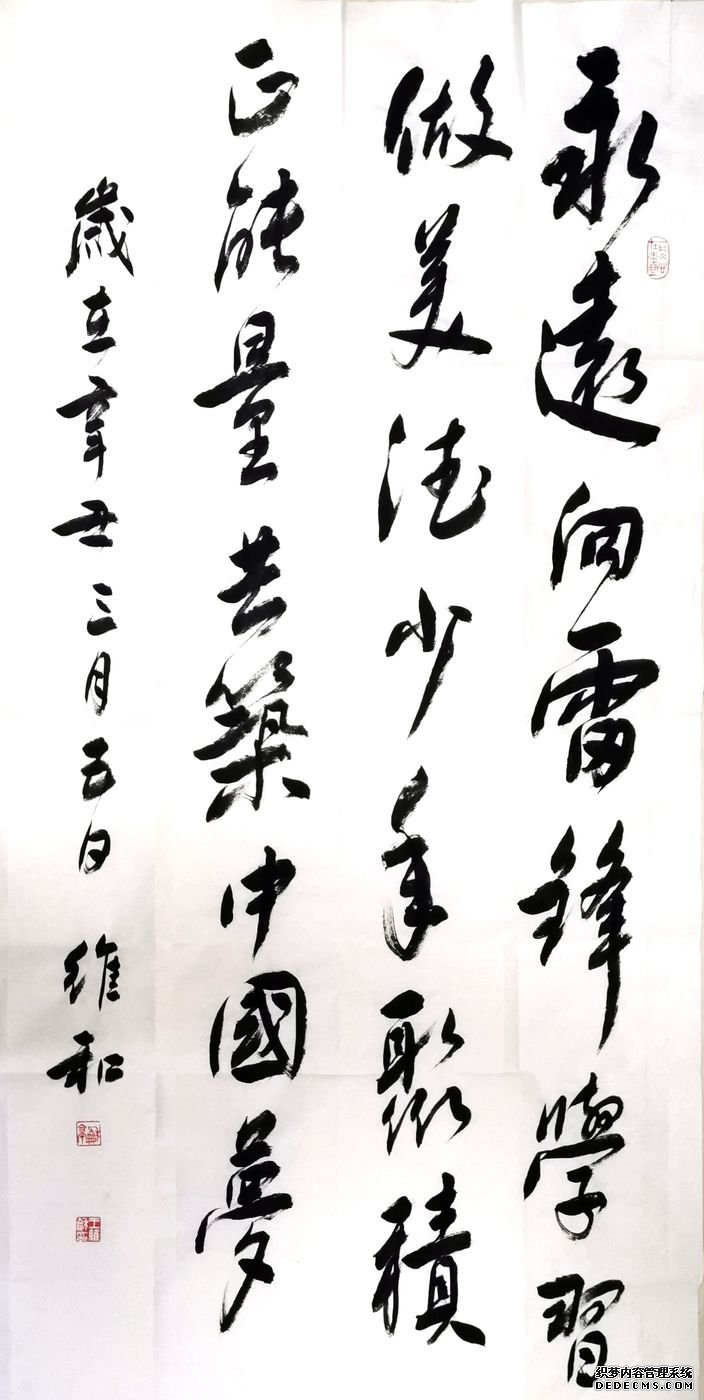 永遠向雷鋒學習
做美德少年聚積
正能量共築中國夢
歲在辛丑三月五日 維和
织梦内容管理系统
DEDECMS.COM